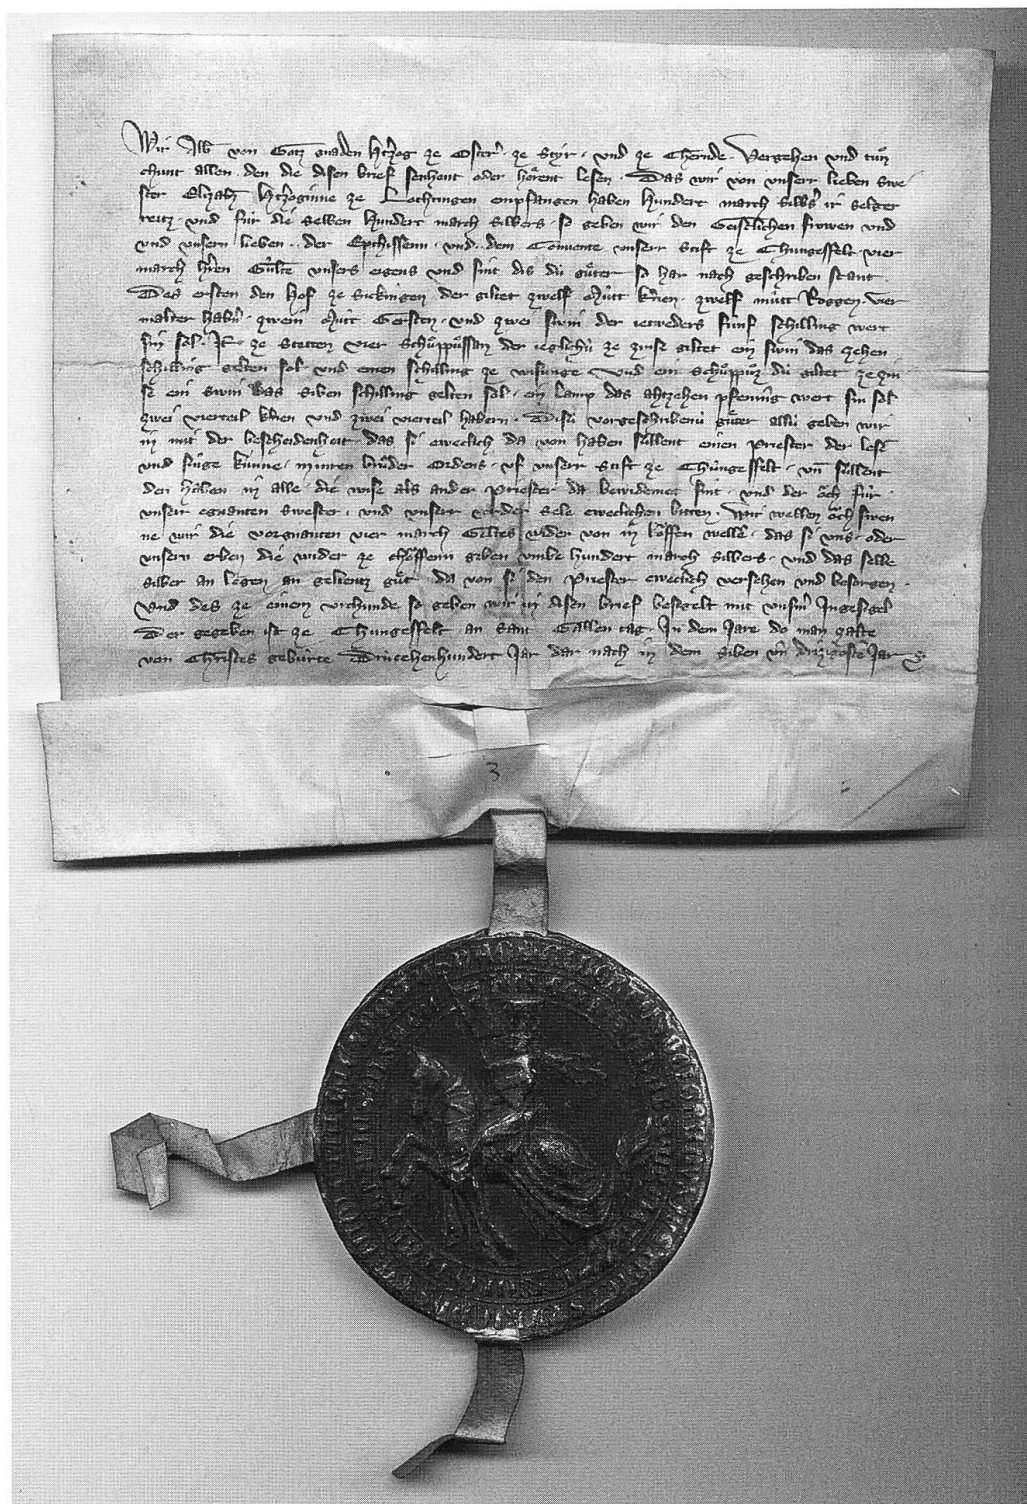 Wir Alb von Gotz gnaden Hertzog ze Osterr · ze Styr · vnd ze Chernde · Vergehen vnd tuͦn
chunt allen · den die disen brief sehent oder hoͤrent lesen · Das wir von vnserr lieben Swe
ster Elizabet Hertzoginne ze Lothringen enpfangen haben Hundert march silbers ir selger
vnd fuͤr die selben Hundert march silbers · so geben wir den Geistlichen frowen vnd
vnd vnsern lieben · der Eptissenn · vnd · dem Conuente vnserr stift ze Chungesfelt vier
march Guͤlte vnsers eigens vnd sint dis duͤ guͤter so har nach geschriben stant
Des ersten den Hof ze Sickingen der giltet zwelf Muͤtt kernen · zwelf muͤtt Roggen · vier
malter habern · zwein Mutt Gersten · vnd zwei swin der ietweders fuͤnf schilling wert
sin sol · Jt ze Stetten vier Schuͦppuͦssan der ieglichuͤ ze zinse giltet ein swin das zehen
schilling gelten sol · vnd einen schilling ze wisunge · Vnd ein Schuͦppuͦz duͤ giltet ze zin
se ein swin das siben schilling gelten sol · ein lamp das ahtzehen pfenning wert sin sol
zwei vierteil kernen vnd zwei vierteil habern · Disuͤ vorgeschribenuͤ guͤter alluͤ geben wir
in mit der bescheidenheit · das si eweclich da von haben suͤllent einen Priester der lese
vnd singe kuͤnne · minren bruͤder Ordens · vf vnserr stift ze Chuͤngesfelt · vn suͤllent
den haben in alle die wise als ander Priester da bewidemet sint · vnd der oͮch fuͤr
vnser egnanten swester · vnd vnserr vorder sele eweclichen bitten · Wir wellen oͮch swen
ne wir die vorgnanten vier march Geltes wider von in koͮffen wellen · das si vns · oder
vnsern erben die wider ze choͮffenn geben vmbe hundert march silbers · vnd das selbe
silber an legen an gelientz guͦt da von si den Priester eweclich versehen vnd besorgen ·
Vnd des ze einem vrchunde so geben wir in disen brief besigelt mit vnserm Jngesigel
Der gegeben ist ze Chungesfelt an Sant Gallen tag Jn dem Jare do man zalte
von Christes gebuͤrte Druͤtzehenhundert Jar dar nach in dem siben vn drizigosten Jar
3